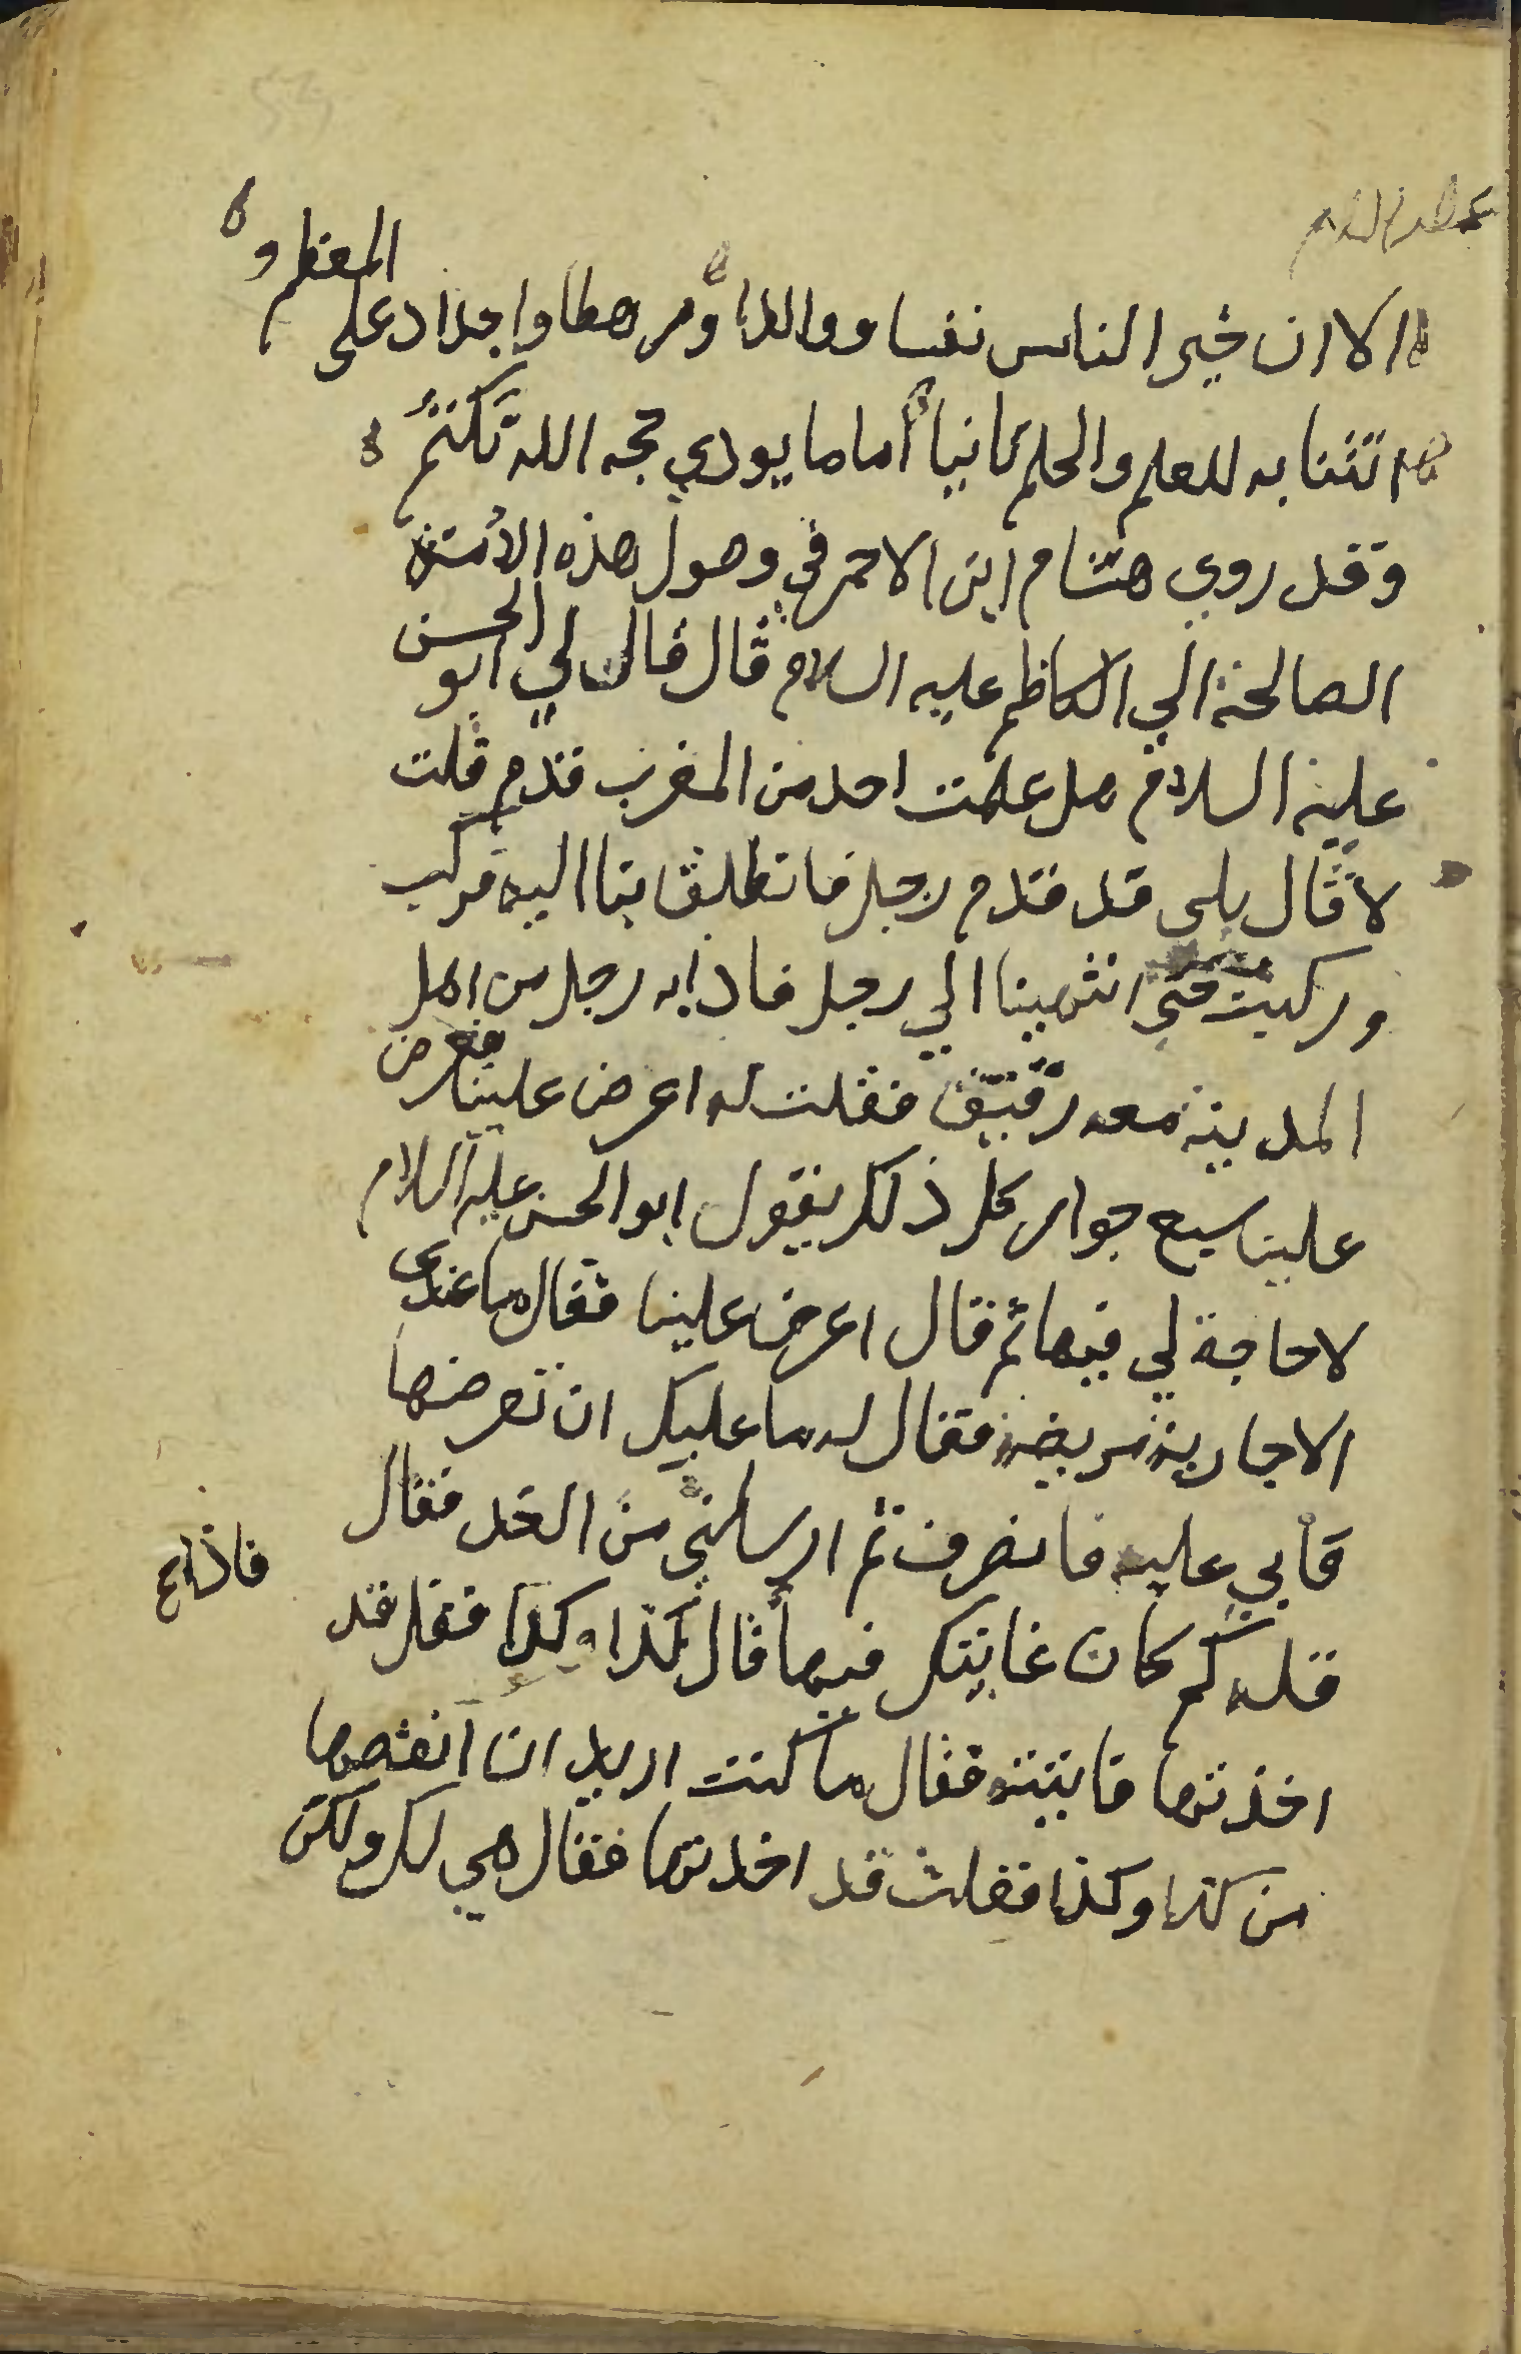 الا ان خير الناس نفسا ووالدا ورهطا واجدادا علي المعظم
اتتنا به للعلم والحلم ثانيا أماما يودي حجه الله تكتم
وقد روي هشام ابن الاحمر في وصول هذه الأمتة
الصالحة الي الكاظم عليه السلام قال قال لي ابو الحسن
عليه السلام هل علمت احد من المغرب قدم قلت
لا قال بلى قد قدم رجل فانطلق بنا اليه فركب
وركبت حتي انتهينا الي رجل فاذا به رجل من اهل
المدينة معه رقيق فقلت له اعرض علينا فعرض
علينا سبع جوار كل ذلك يقول ابو الحسن عليه السلام
لا حاجة لي فيها ثم قال اعرض علينا فقال ما عندي
الا جارية مريضة فقال له ما عليك ان تعرضها
فأبي عليه فانصرف ثم ارسلني من الغد فقال
قل له كم كان غايتك فيها فاذا قال كذا وكذا فقل قد
اخذتها فاتيته فقال ما كنت اريد ان انقصها
من كذا وكذا فقلت قد اخذتها فقال هي لك ولكن